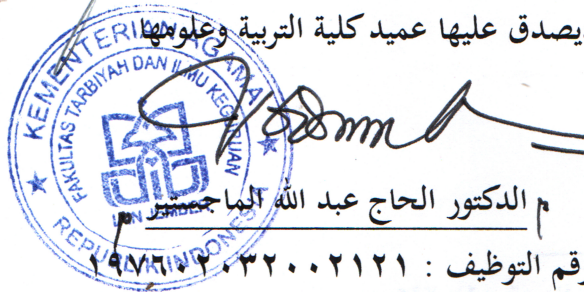 ويصدق عليها عميد كلية التربية وعلومها
KEMENTERIAN AGAMA
FAKULTAS TARBIYAH DAN ILMU KEGURUAN
JEMBER
REPUBLIK INDONESIA
الدكتور الحاج عبد الله الماجستير
رقم التوظيف : ١٩٧٦٠٢٠٣٢٠٠٢١٢١